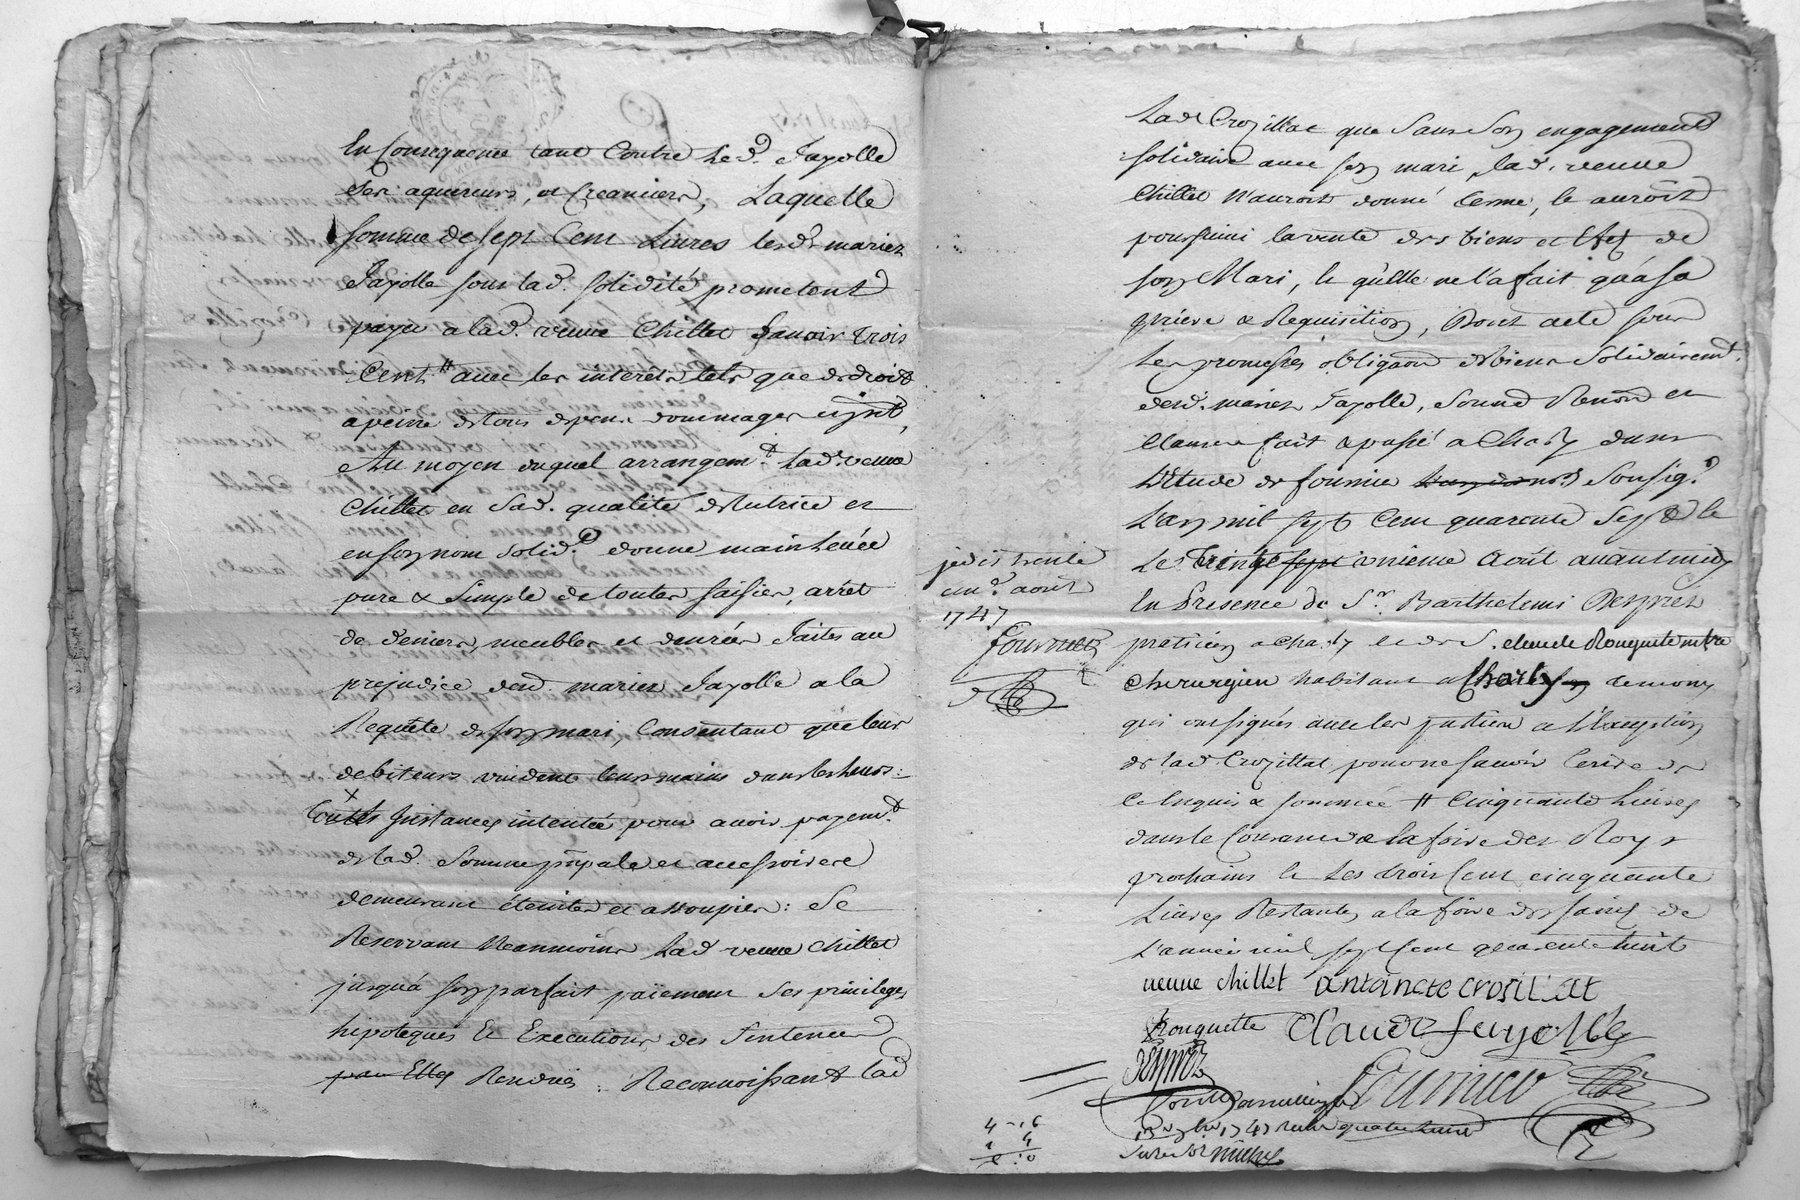 En Consequence tant Contre led. Fayolle
ses aquereurs, et Creanciers, Laquelle
somme de sept Cent Livres lesd. mariez
Fayolle sous lad. solidité prometent
payer a lad. veuve Chillet savoir trois
Cent ₶ avec les interêts tels que de droit
a peine de tous depens dommages
Au moyen duquel arrangemt. Lad. veuve
Chillet en sad. qualité de tutrice et
en son nom solid.e donne mainlevée
pure & simple de toutes saisies, arrêt
de deniers, meubles et denrées faites au
prejudice desd. mariez Fayolle a la
Requête de son mari, Consentant que leurs
debiteurs vuident leurs mains
toutes Instances intentée pour avoir payemt.
de lad. Somme pñpale et accessoire
demeurant éteintes et assoupies: Se
Reservant Neanmoins Lad veuve Chillet
jusqu'á son parfait païement ses privileges
hipoteques Et Executions des Sentences
par Elles Rendues. Reconnoissant Lad
Lad. Crozillat que sans son engagement
solidaire avec son mari, lad. veuve
Chillet n'auroit donné terme, & auroit
poursuivi la vente des biens et effets de
son Mari, & qu'elle ne l'a fait qu'a sa
priere & Requisition, Dont acte sous
Les promesses obligaõn de biens solidairemt.
desd. mariez Fayolle, Soumõn Renõn et
Clauses fait & passé a Charly dans
L'Etude de fournier nore. Soussig.é
L'an mil sept Cent quarente sept &
Le Trente sept unieme Août avant midy
En Presence de Sr. Barthelemi Desprez
praticien a Charly et de S. claude Rouquette mtre
Chirurgien habitant a Charly temoins
qui ont signés avec les parties a l'exception
de lad Crozillat pour ne savoir Ecrire de
Ce Enquis & sommée # Cinquante Livres
dans le Courant de la foire des Roys
prochains & Les trois Cent cinquante
Livres Restantes a la foire des saints de
L'année mil sept cent quarente huit
je dis trente
un.e août
1747
fournier
veuve chillet antoinete crosillat
Rouquette Claude fayolle
Fournier
4 - 16